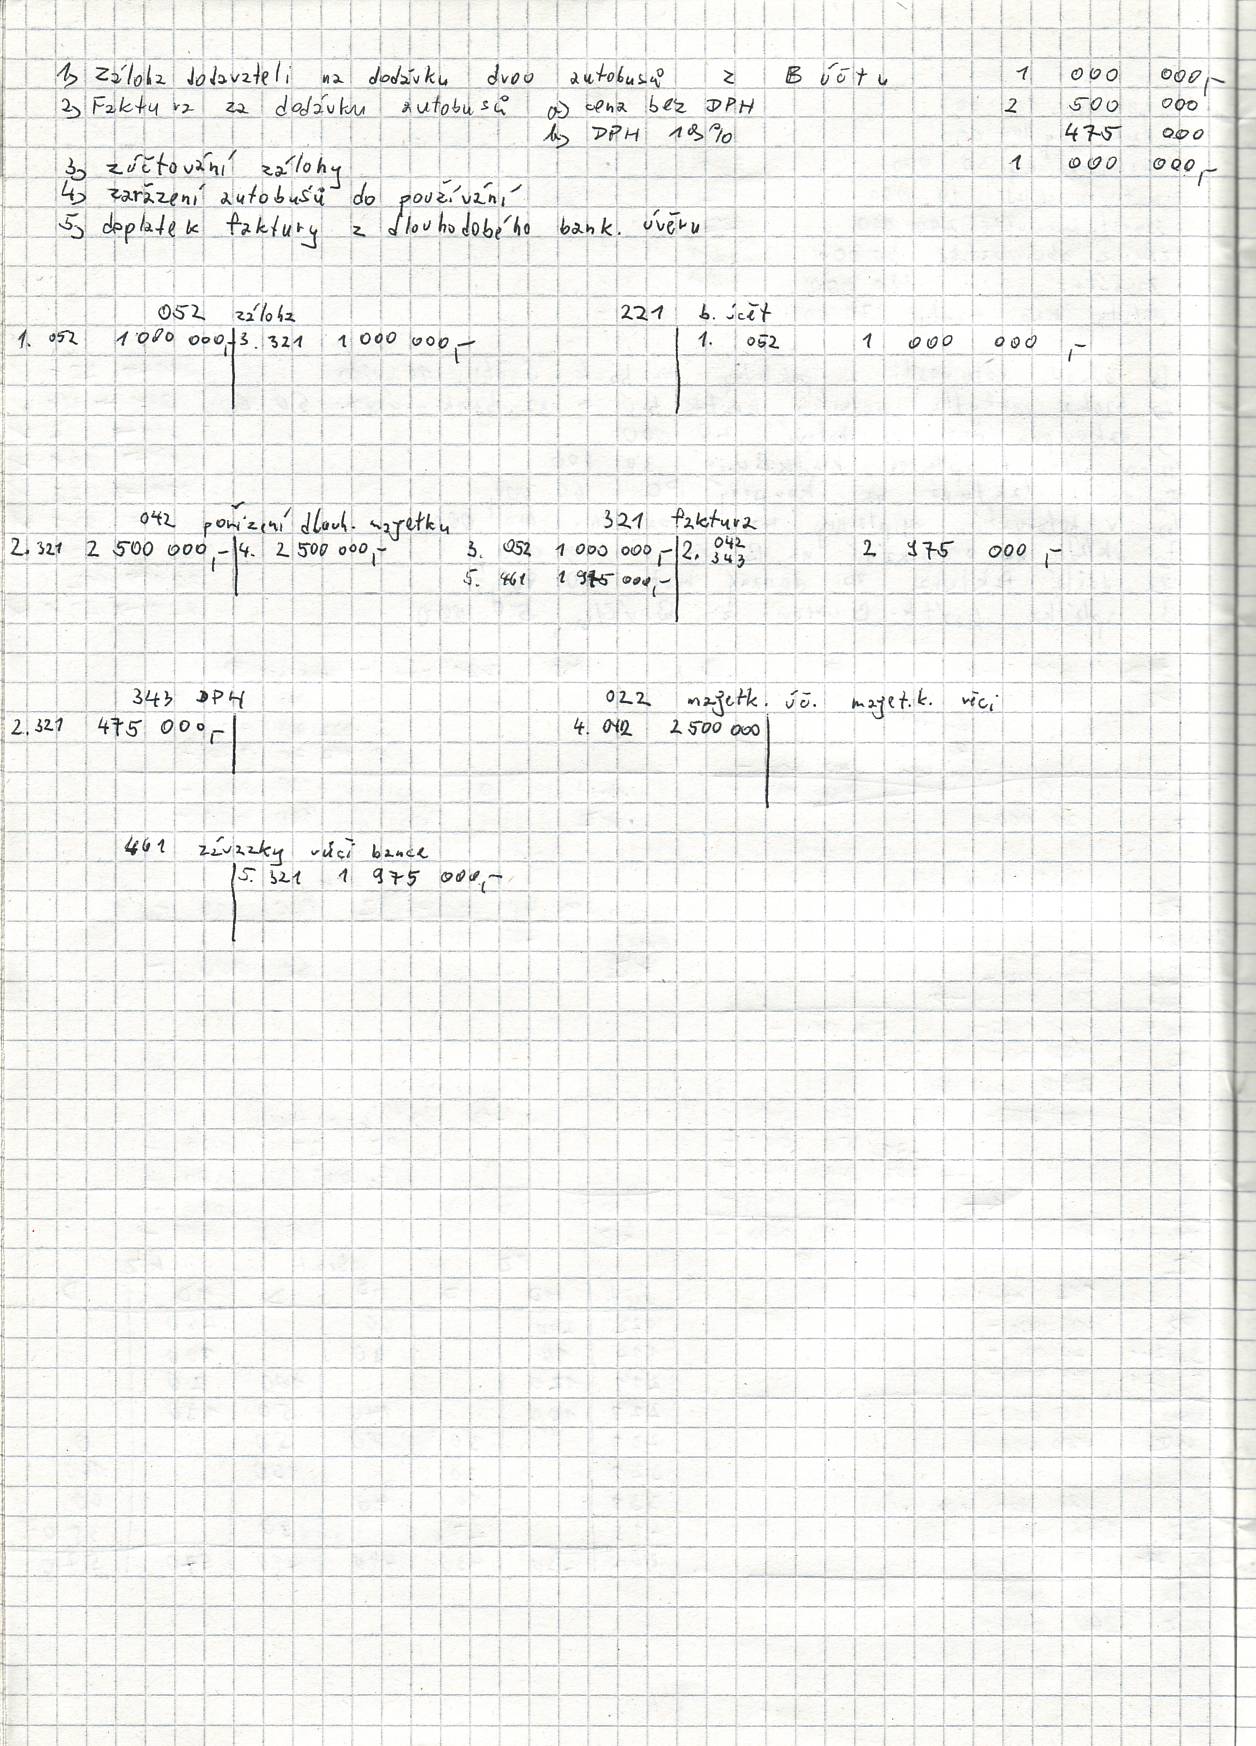 1) Záloha dodavateli na dodávku dvou autobusů z B účtu 1 000 000,-
2) Faktura za dodávku autobusů a) cena bez DPH 2 500 000
b) DPH 19% 475 000
3) zúčtování zálohy 1 000 000,-
4) zařazení autobusů do používání
5) doplatek faktury z dlouhodobého bank. úvěru
052 záloha 221 b. účet
1. 052 1 000 000,- 3. 321 1 000 000,- 1. 052 1 000 000,-
042 pořízení dlouh. majetku 321 faktura
2. 321 2 500 000,- 4. 2 500 000,- 3. 052 1 000 000,- 2. 042 343 2 975 000,-
5. 461 1 975 000,-
343 DPH 022 majetk. úč. majet.k. věci
2. 321 475 000,- 4. 042 2 500 000
461 závazky vůči bance
5. 321 1 975 000,-